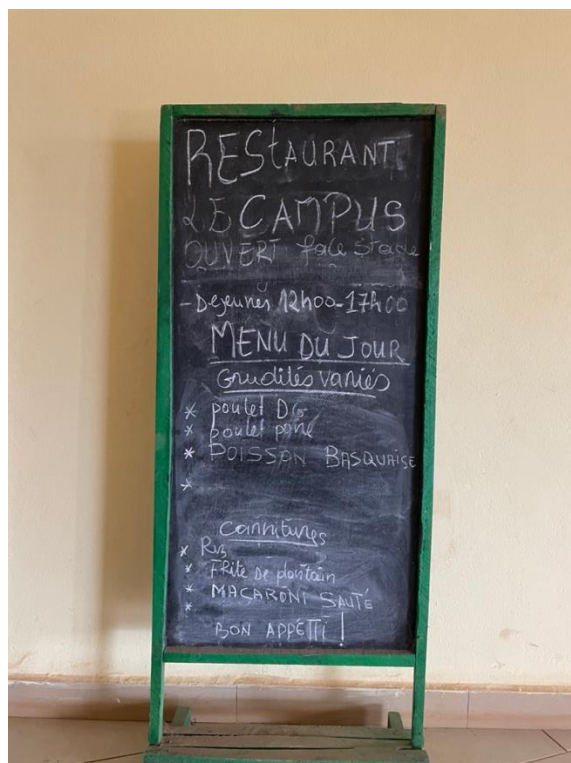 REStAURANT
LE CAMPUS
OUVERT face stade
- Dejeunés 12h00-17h00
MENU DU JOUR
Crudités variés
* poulet DG
* poulet pané
* POISSON BASQUAISE
*
Garnitures
* Riz
* FRite De plantain
* MACARONI SAUTÉ
*
BON APPÉTTI !